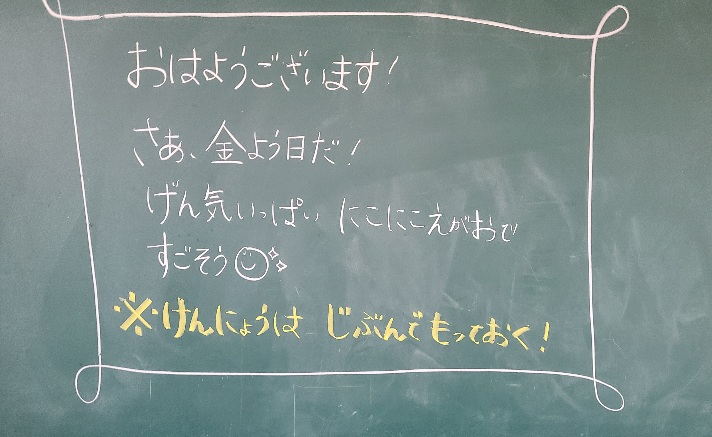 おはようございます!
さあ、金よう日だ!
げん気いっぱい にこにこえがおで
すごそう
※けんにょうは じぶんでもっておく!